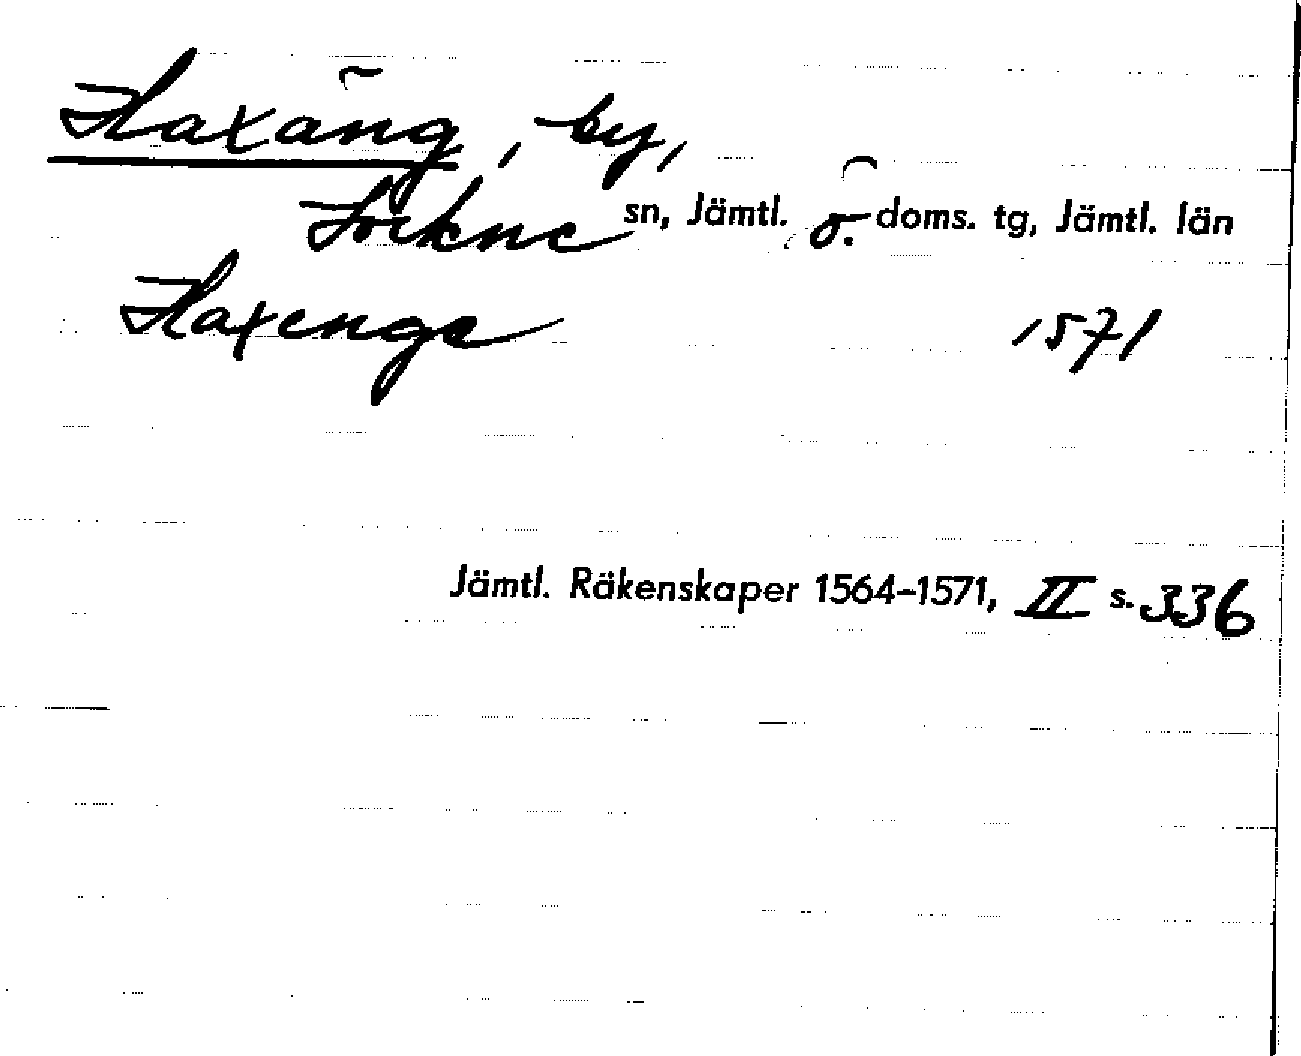 Haxäng, by,
Lockne sn, Jämtl. ö. doms. tg, Jämtl. län
Haxenge 1571
Jämtl. Räkenskaper 1564–1571, II s. 336